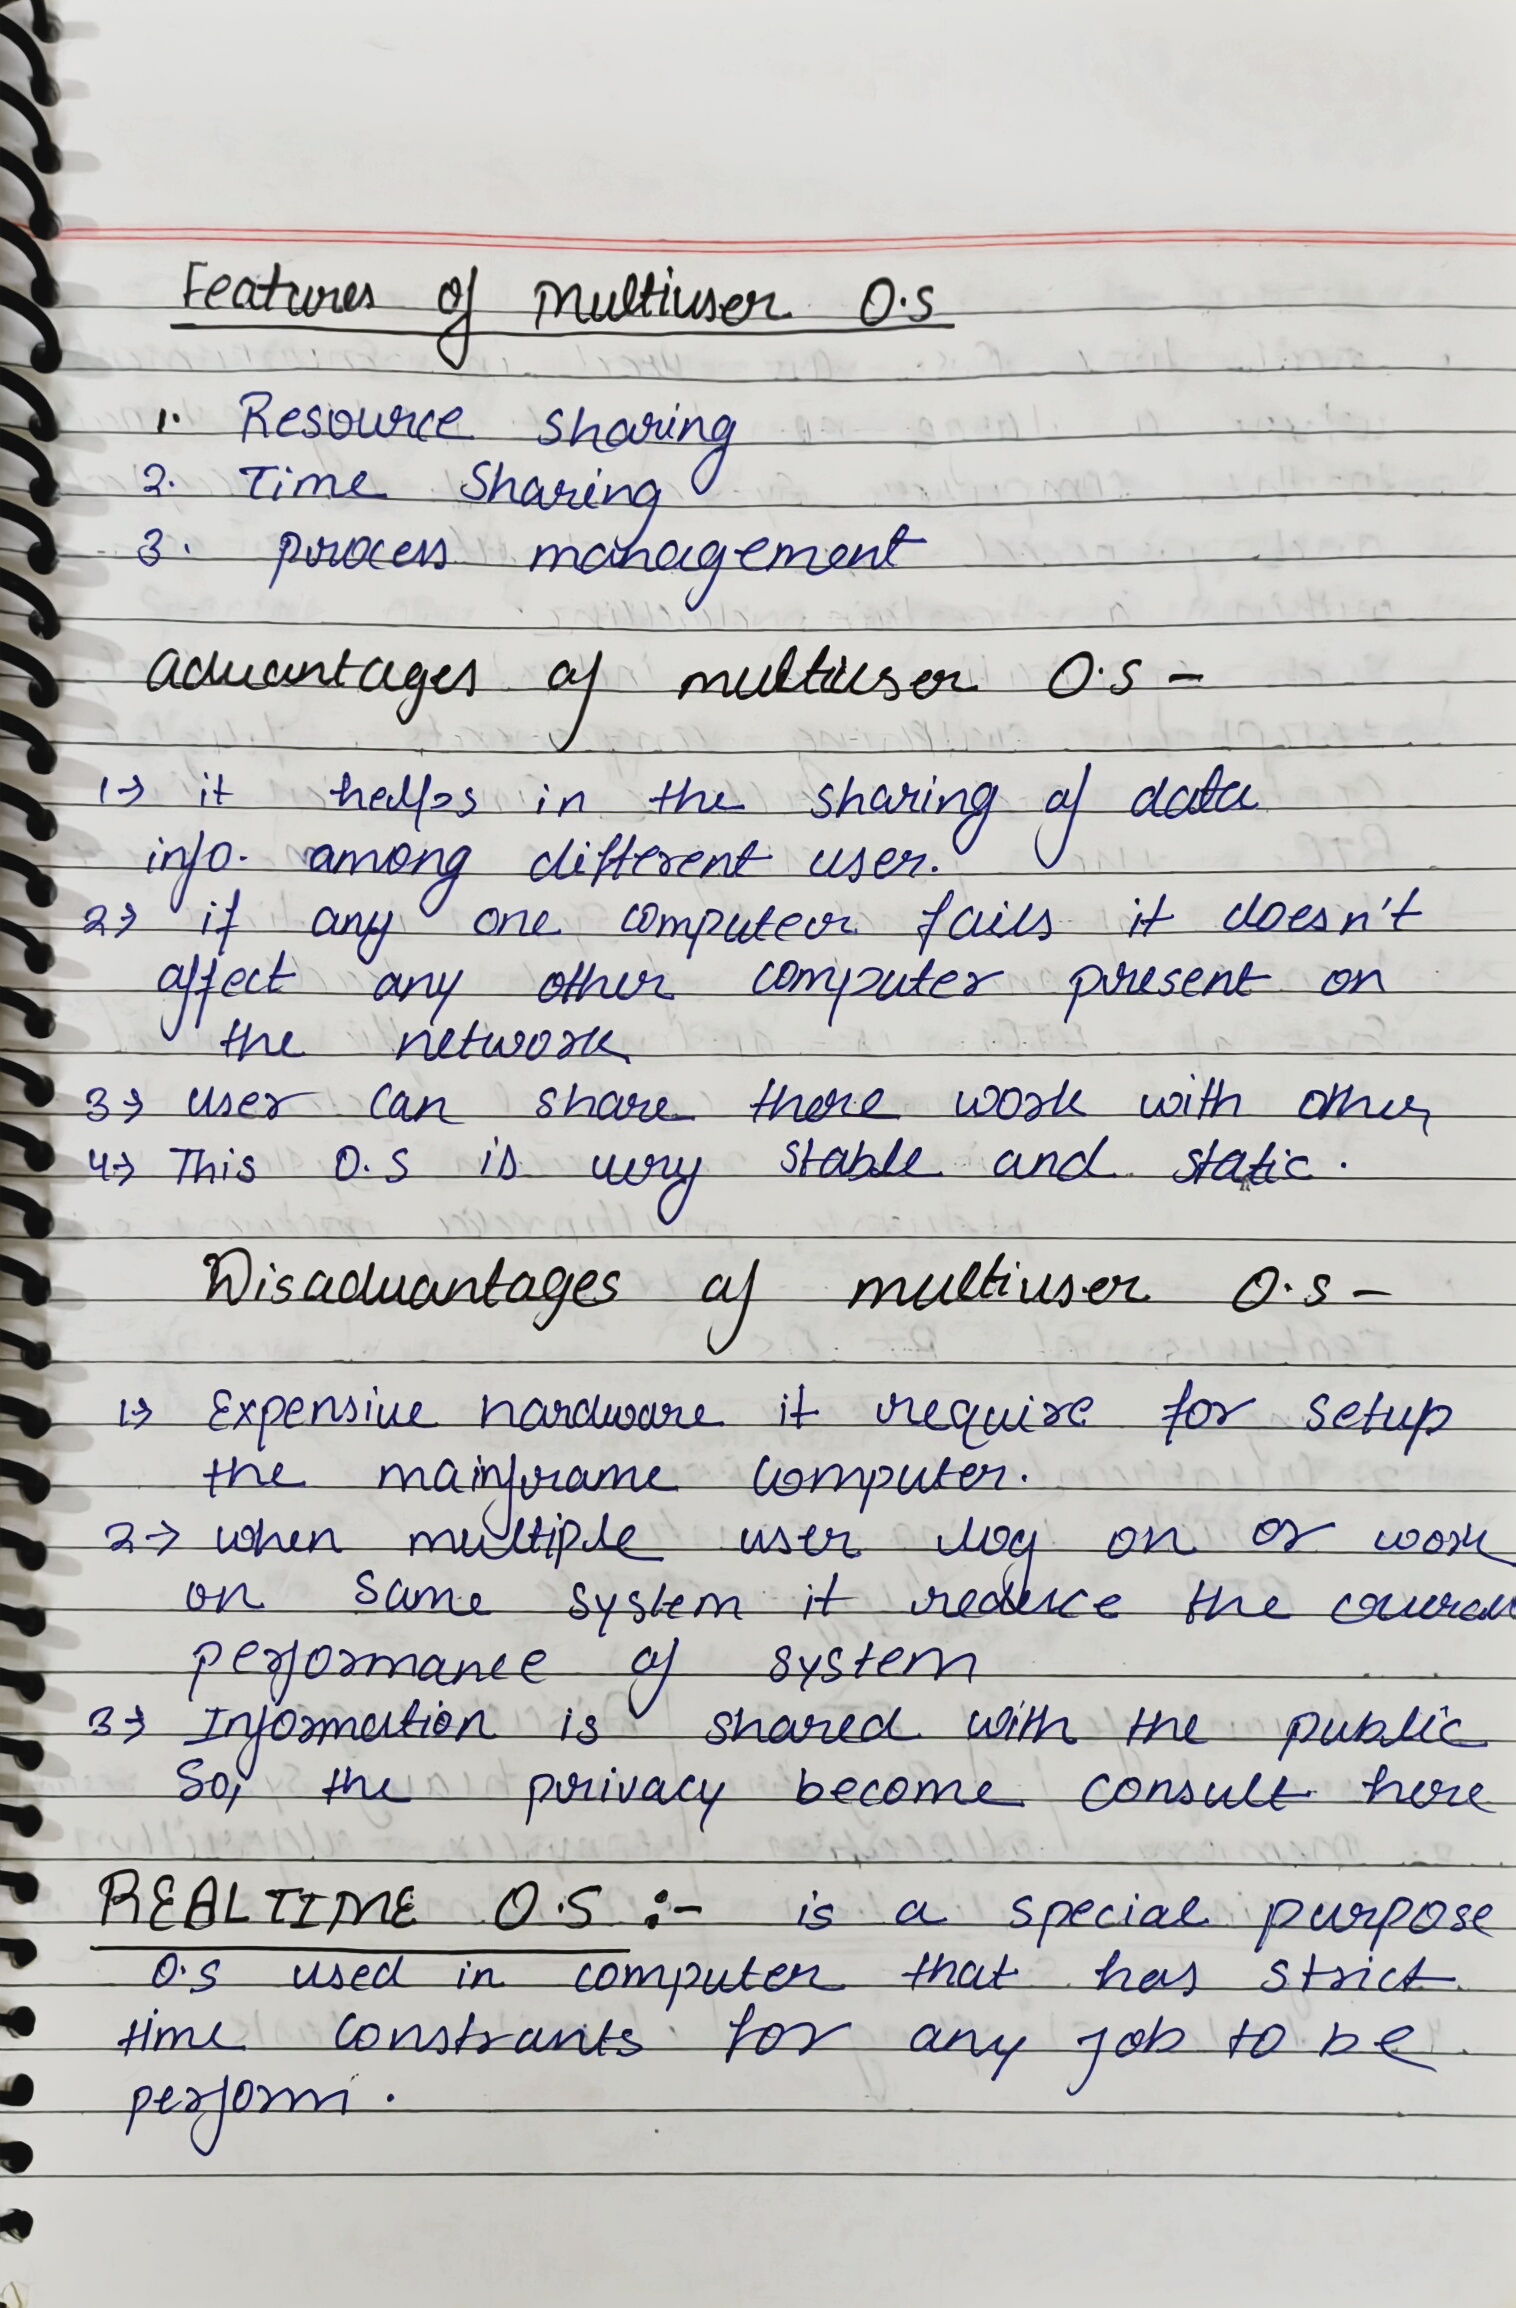 Features of multiuser O.S
1. Resource sharing
2. Time Sharing
3. process management
advantages of multiuser O.S -
1→ it helps in the sharing of data
info. among different user.
2→ if any one computer fails it doesn't
affect any other computer present on
the network
3→ user can share there work with other
4→ This O.S is very stable and static.
Disadvantages of multiuser O.S -
1→ Expensive hardware it require for setup
the mainframe computer.
2→ when multiple user log on or work
on same system it reduce the overall
performance of system
3→ Information is shared with the public
So, the privacy become consult here
REALTIME O.S :- is a special purpose
O.S used in computer that has strict
time constrants for any job to be
perform.